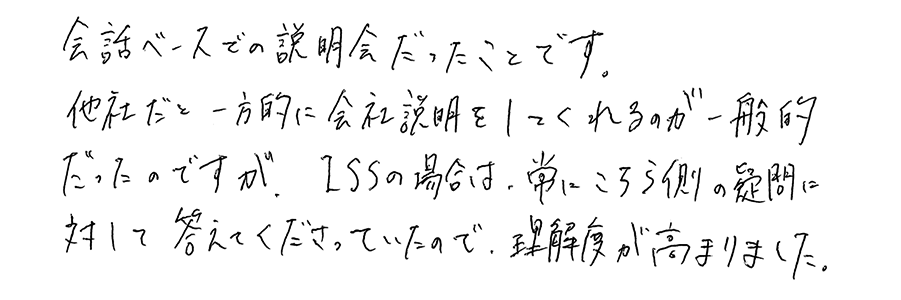 会話ベースでの説明会だったことです。
他社だと一方的に会社説明をしてくれるのが一般的
だったのですが、ISSの場合は、常にこちら側の疑問に
対して答えてくださっていたので、理解度が高まりました。